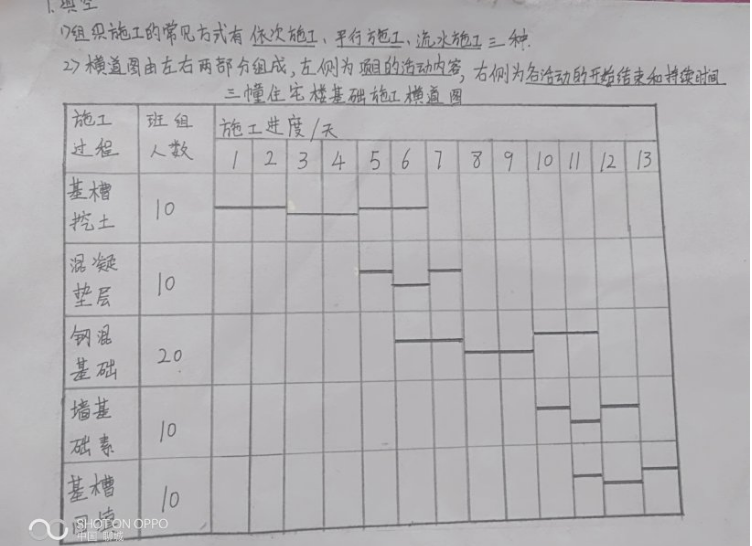 1.填空
1)组织施工的常见方式有依次施工、平行施工、流水施工三种.
2)横道图由左右两部分组成,左侧为项目的活动内容,右侧为各活动的开始结束和持续时间
三幢住宅楼基础施工横道图
施工过程 班组人数 施工进度/天
1 2 3 4 5 6 7 8 9 10 11 12 13
基槽挖土 10
混凝垫层 10
钢混基础 20
墙基础素 10
基槽回填 10
SHOT ON OPPO
中国 聊城